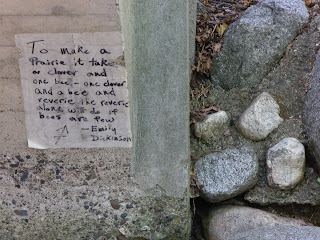 To make a
Prairie it take
a clover and
one bee - one clover
and a bee and
reverie the reverie
alone will do if
bees are few
— Emily
Dickinson